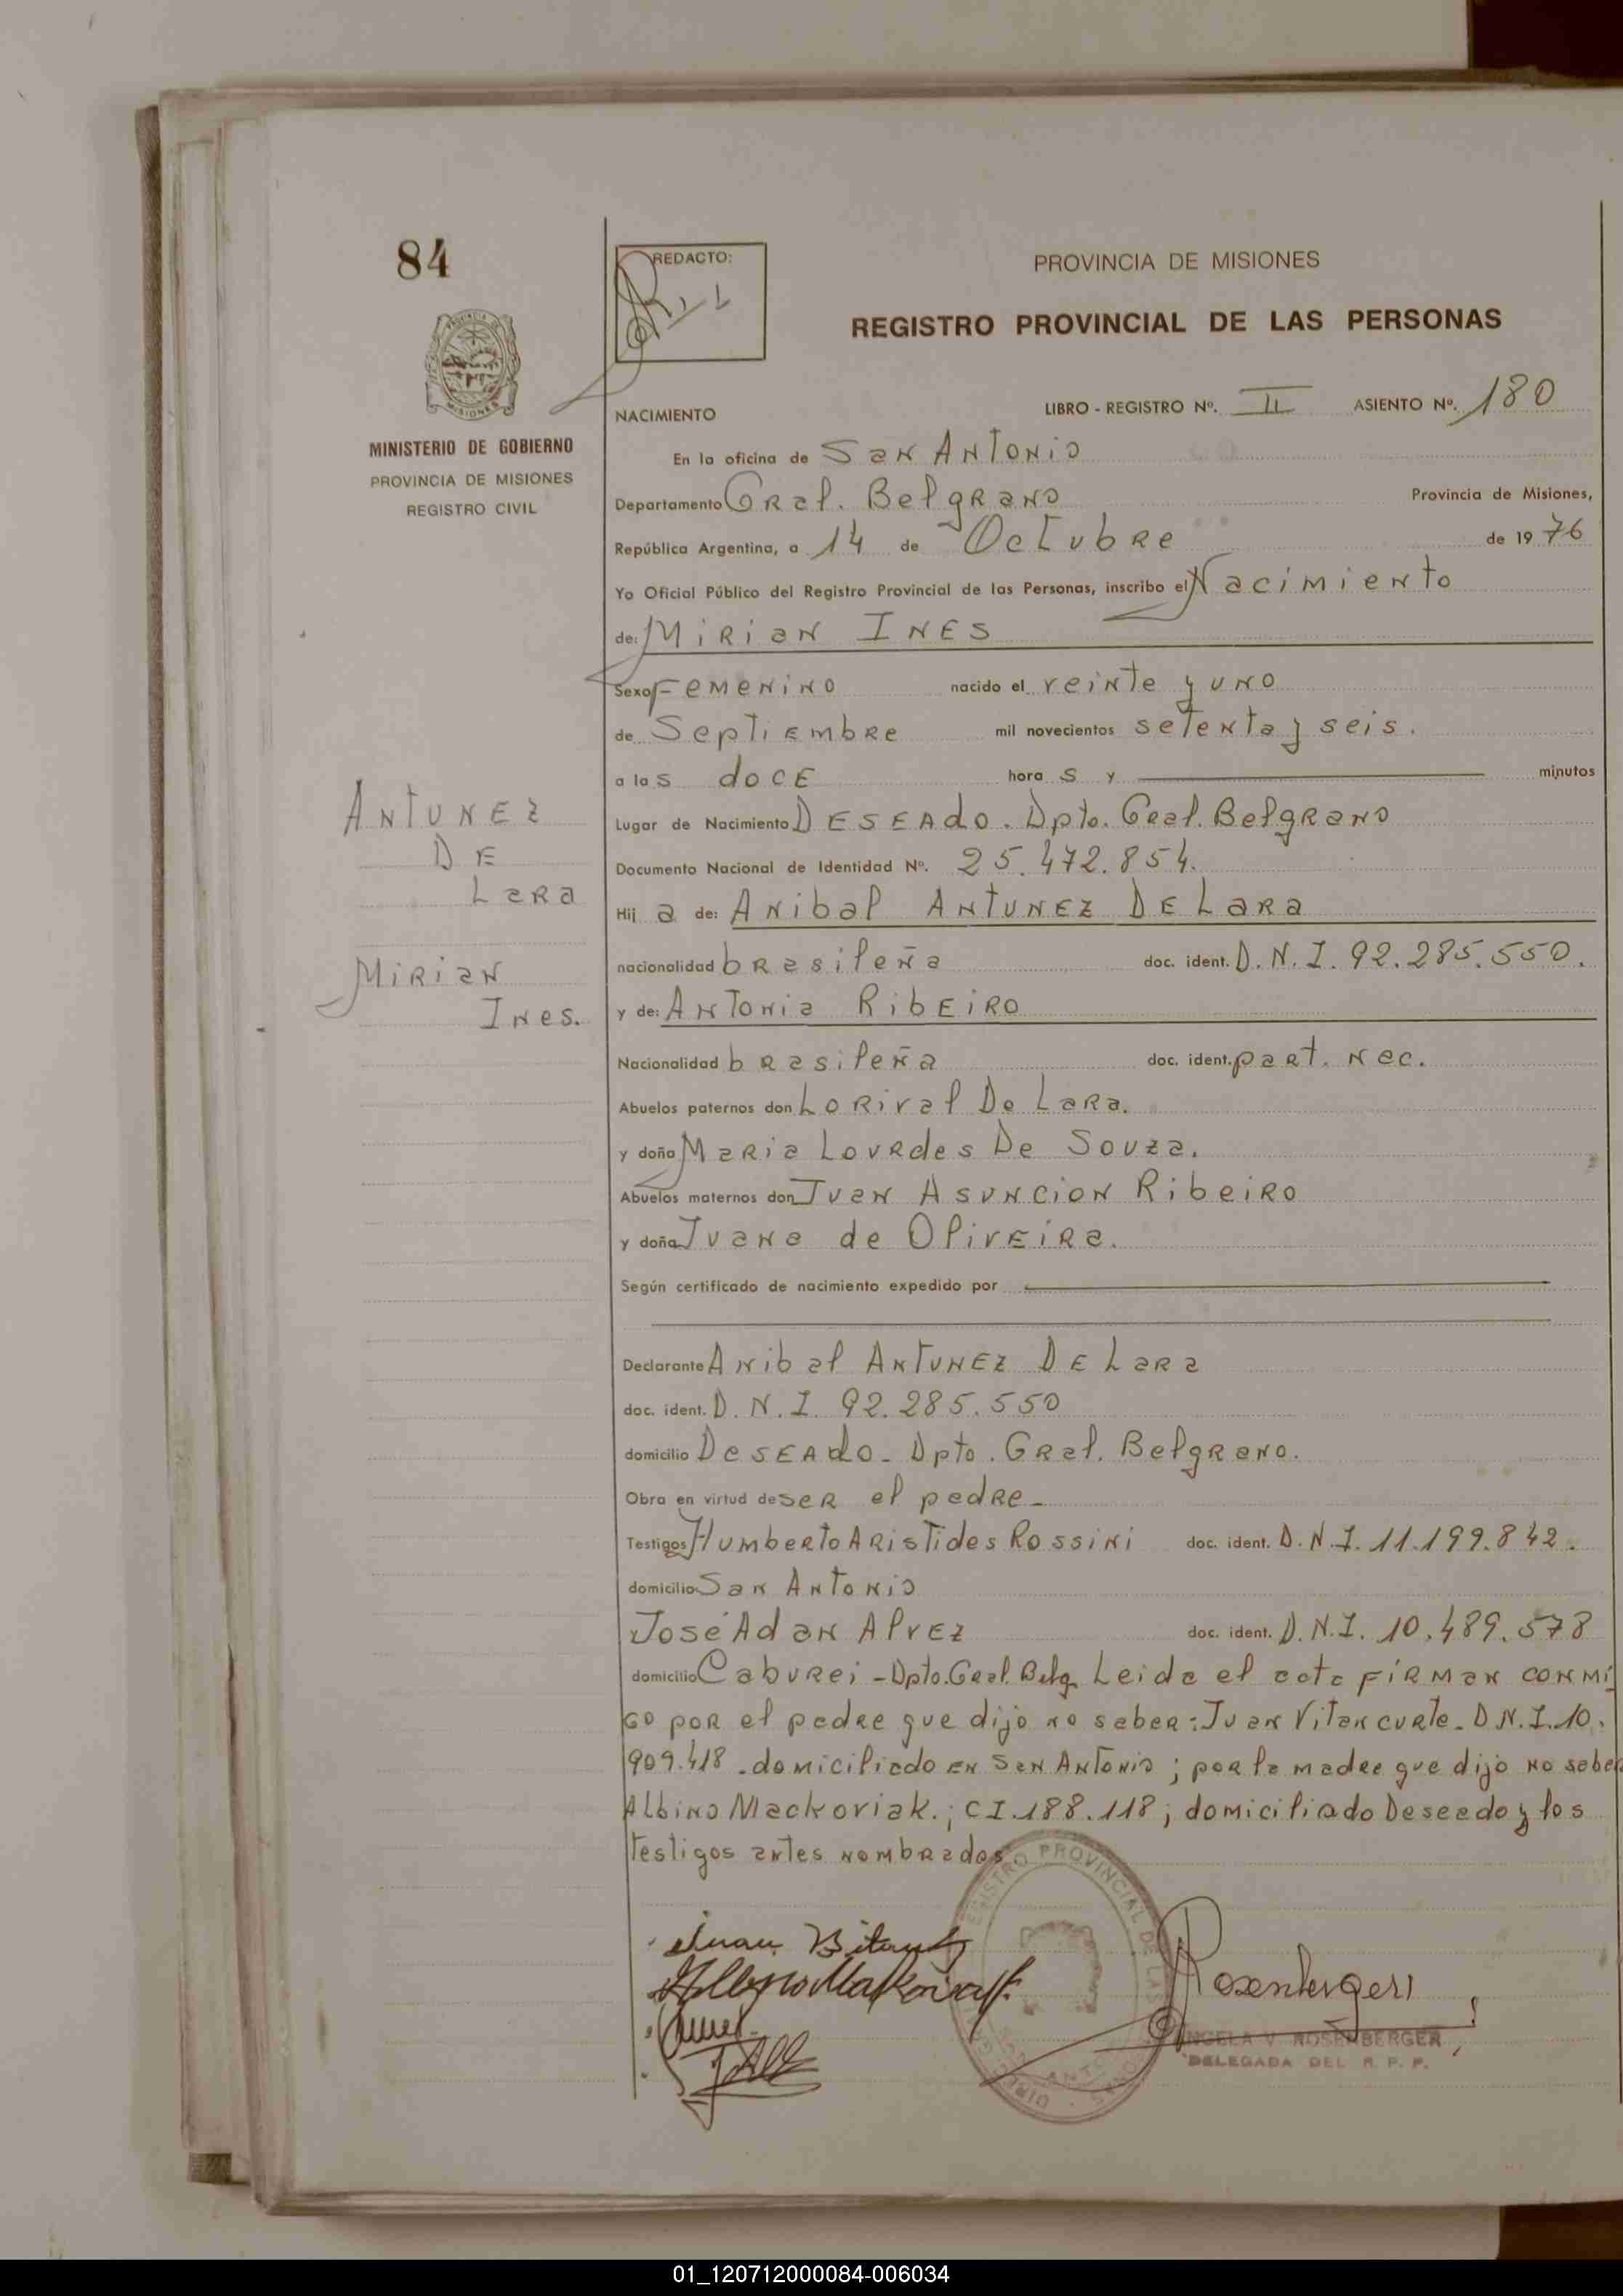 84
REDACTO:
PROVINCIA DE MISIONES
REGISTRO PROVINCIAL DE LAS PERSONAS
MISIONES
MINISTERIO DE GOBIERNO
PROVINCIA DE MISIONES
REGISTRO CIVIL
NACIMIENTO LIBRO - REGISTRO Nº. II ASIENTO Nº. 180
En la oficina de San Antonio
Departamento Gral. Belgrano Provincia de Misiones,
República Argentina, a 14 de Octubre de 1976
Yo Oficial Público del Registro Provincial de las Personas, inscribo el Nacimiento
de: Mirian INES
Sexo Femenino nacido el veinte y uno
de Septiembre mil novecientos setenta y seis.
a las doce horas y minutos
Lugar de Nacimiento Deseado. Dpto. Gral. Belgrano
Documento Nacional de Identidad Nº. 25.472.854.
Hija de: Anibal Antunez De Lara
nacionalidad brasileña doc. ident. D.N.I. 92.285.550.
y de: Antonia Ribeiro
Nacionalidad brasileña doc. ident. part. nac.
Abuelos paternos don Lorival De Lara.
y doña Maria Lourdes De Souza.
Abuelos maternos don Juan Asuncion Ribeiro
y doña Juana de Oliveira.
Según certificado de nacimiento expedido por
Declarante Anibal Antunez De Lara
doc. ident. D.N.I. 92.285.550
domicilio Deseado - Dpto. Gral. Belgrano.
Obra en virtud de ser el padre -
Testigos Humberto Aristides Rossini doc. ident. D.N.I. 11.199.842.
domicilio San Antonio
José Adan Alvez doc. ident. D.N.I. 10.489.578
domicilio Caburei - Dpto. Gral. Belg. Leida el acta firman conmi
go por el padre que dijo no saber: Juan Vitancurte. D.N.I. 10.
909.418 - domiciliado en San Antonio; por la madre que dijo no saber
Albino Mackoviak.; C I. 188.118; domiciliado Deseado y los
testigos antes nombrados
Antunez
De
Lara
Mirian
Ines.
REGISTRO PROVINCIAL DE LAS
Juan
Rosenberger
ANGELA V. ROSENBERGER
DELEGADA DEL R. P. P.
01_120712000084-006034